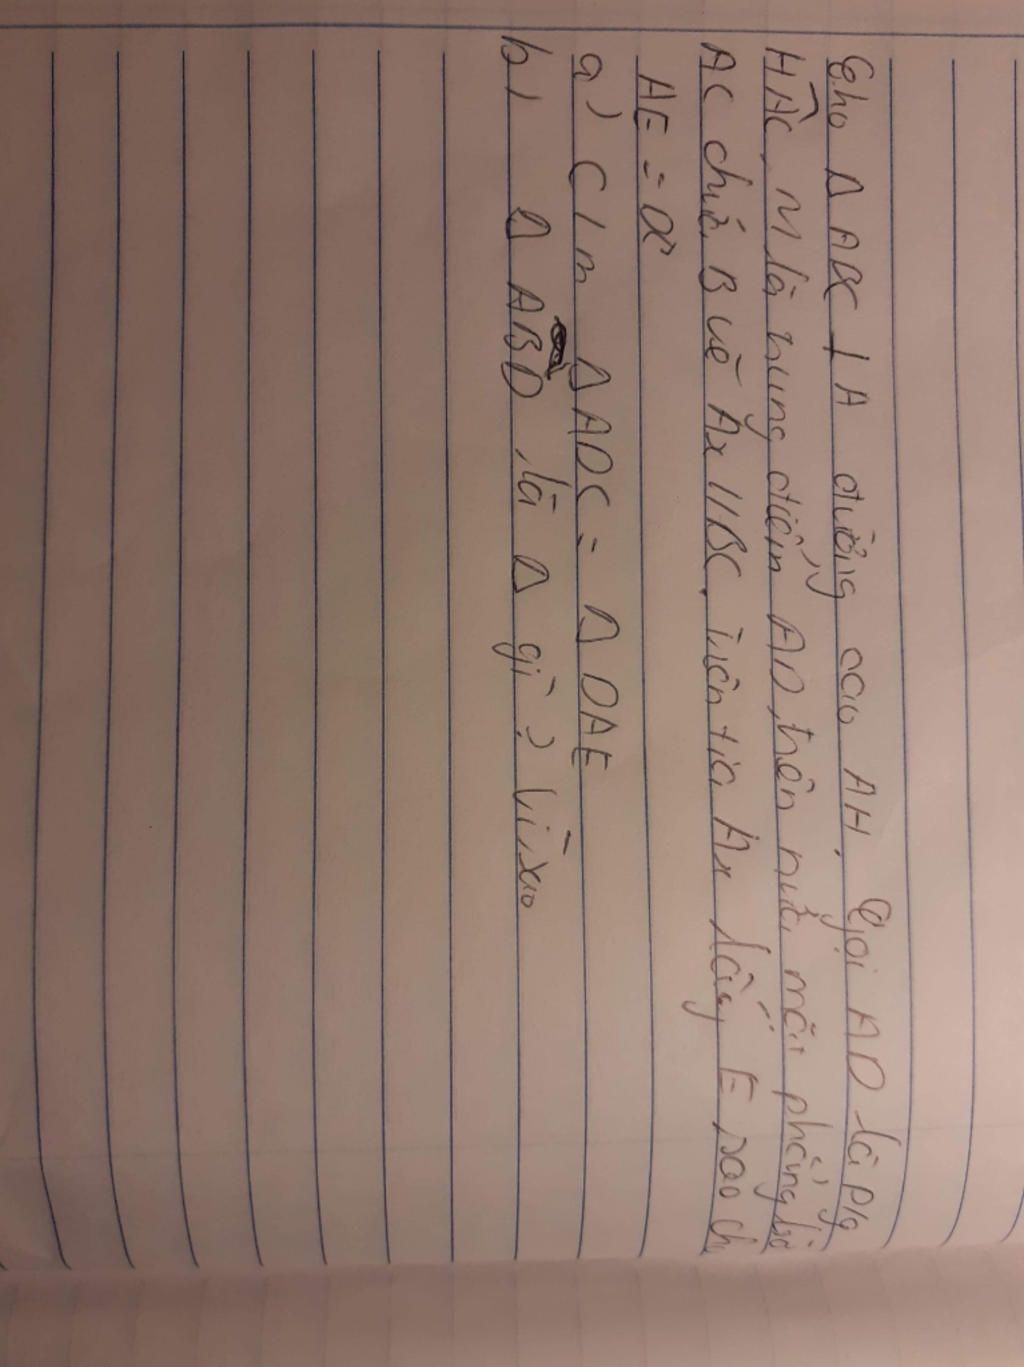 Cho Δ ABC ⊥ A đường cao AH. Gọi AD là p/g
HÂC, M là trung điểm AD, trên nửa mặt phẳng bờ
AC chứa B vẽ Ax // BC. Trên tia Ax lấy E sao ch
AE = DC
a) C/m ΔADC = Δ DAE
b) Δ ABD là Δ gì? Vì sao